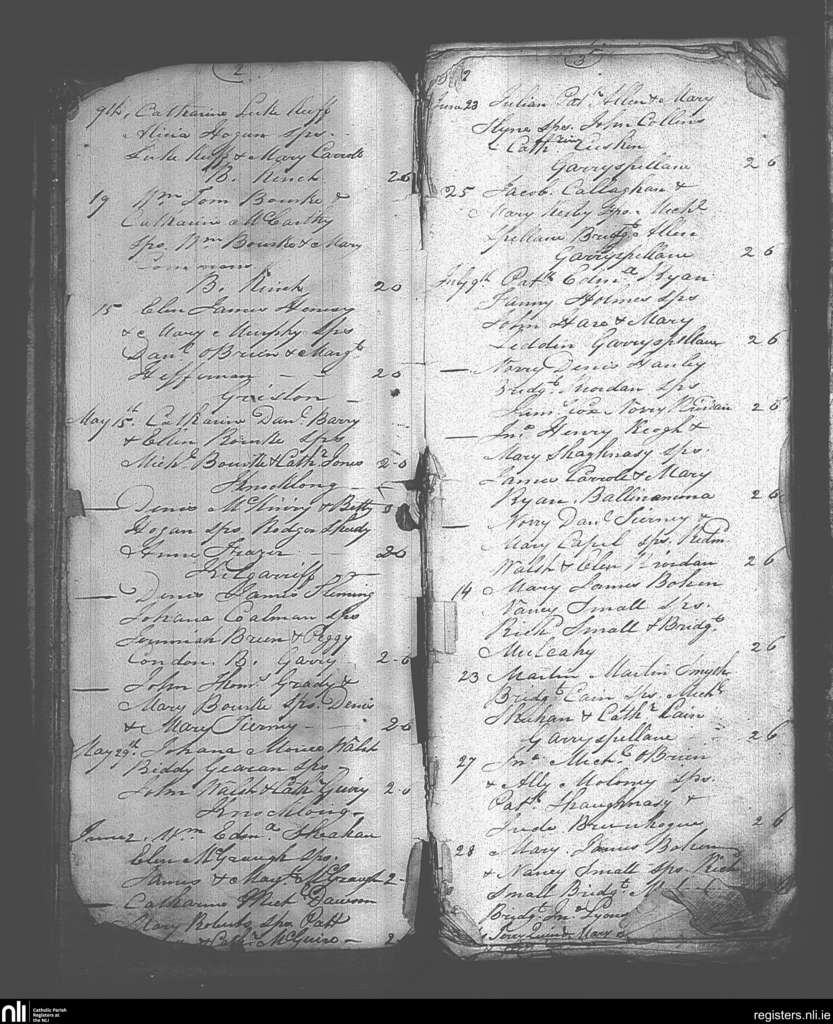 2
9th, Catharine Luke Keeff
Alicia Hogan sps.
Luke Keeff & Mary Carroll
B. Kinch 2 6
19 Wm Tom Bourke &
Catharine McCarthy
sps. Wm Bourke & Mary
Commons
B. Kinch 2 0
15 Elen James Henesy
& Mary Murphy sps
Danl OBrien & Margt
Heffernan 2 0
Griston
May 15th Catharine Danl Barry
& Ellen Rourke sps
Michl Bourke & Cathr Jones 2-0
Knocklong
— Denis & Betty
Hogan sps Rodger Sheedy
& Anne Frazer 2 0
Kilgarriff
— Denis James Fleming
Johana Coalman sps
Jeremiah Breen & Peggy
Condon. B. Garry 2-6
— John Thoms Grady &
Mary Bourke sps. Denis
& Mary Tierney 2 6
May 29th Johana Walsh
Biddy Gearan sps
John Walsh & Cathr 2 0
Knocklong
June 2. Wm Edmd Sheahan
Elen McGraugh sps.
James & Margt McGraugh 2-
— Catharine Michl Dawson
Mary Roberts sps Patt
& Cathr McGuire 2
3
June 23 Julian Patk Allen & Mary
Hyne sps John Collins
Cathrin
Garryspillane 2 6
25 Jacob. Callaghan &
Mary Kirby spos Michl
Spellane Bridgt Allen
Garryspillane 2 6
July 9th Patk Edmd Ryan
Fanny Holmes sps
John Hare & Mary
Leddin Garryspillane 2 6
— Norry Denis Hanley
Bridgt Riordan sps
Norry Riordan 2 6
— Jno Henry Keogh &
Mary Shaghnasy sps.
James Carroll & Mary
Ryan. Ballinamona 2 6
— Norry Danl Tierney &
Mary Capel sps. Redmd
Walsh & Elen Riordan 2 6
14 Mary James Bohen
Nancy Small sps.
Richd Small & Bridgt
Mulcahy 2 6
23 Martin Martin Smyth
Bridgt Cain sps Michl
Shehan & Cathr Cain
Garryspellane 2 6
27 Jno Michl OBrien
& Ally Moloney sps.
Patk Shaughnasy &
Jude 2 6
28 Mary James Bohen
& Nancy Small sps Rich
Small Bridgt
Bridgt Jno Lyons
Terry & Mary
nli
Catholic Parish
Registers at
the NLI
registers.nli.ie